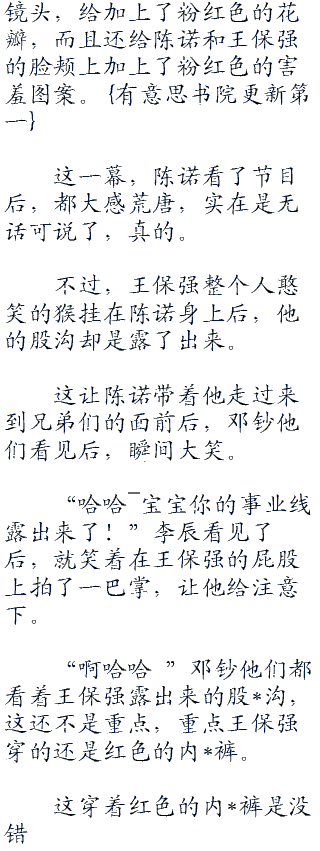 镜头，给加上了粉红色的花
瓣，而且还给陈诺和王保强
的脸颊上加上了粉红色的害
羞图案。{有意思书院更新第
一}
这一幕，陈诺看了节目
后，都大感荒唐，实在是无
话可说了，真的。
不过，王保强整个人憨
笑的猴挂在陈诺身上后，他
的股沟却是露了出来。
这让陈诺带着他走过来
到兄弟们的面前后，邓钞他
们看见后，瞬间大笑。
“哈哈¯宝宝你的事业线
露出来了！”李辰看见了
后，就笑着在王保强的屁股
上拍了一巴掌，让他给注意
下。
“啊哈哈 ”邓钞他们都
看着王保强露出来的股*沟，
这还不是重点，重点王保强
穿的还是红色的内*裤。
这穿着红色的内*裤是没
错